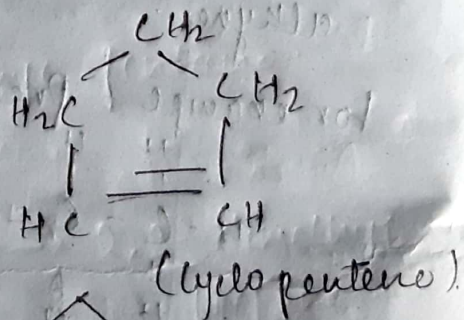 CH2
H2C CH2
HC CH
(Cyclopentene)